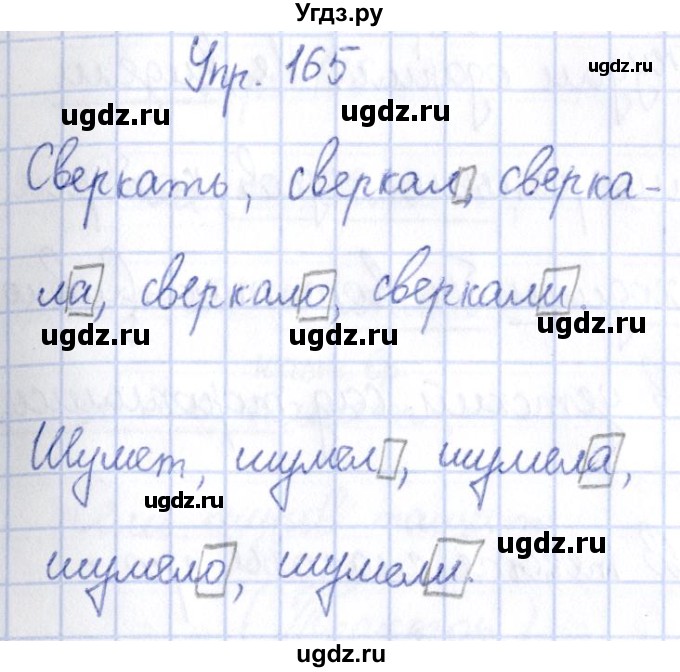 Угдз.ру
Упр. 165
ugdz.ru ugdz.ru
Сверкать, сверкал, сверка-
ugdz.ru ugdz.ru
ла, сверкало, сверкали.
ugdz.ru ugdz.ru ugdz.ru
Шумет, шумел, шумела,
ugdz.ru ugdz.ru
шумело, шумели.
ugdz.ru
Угдз.ру